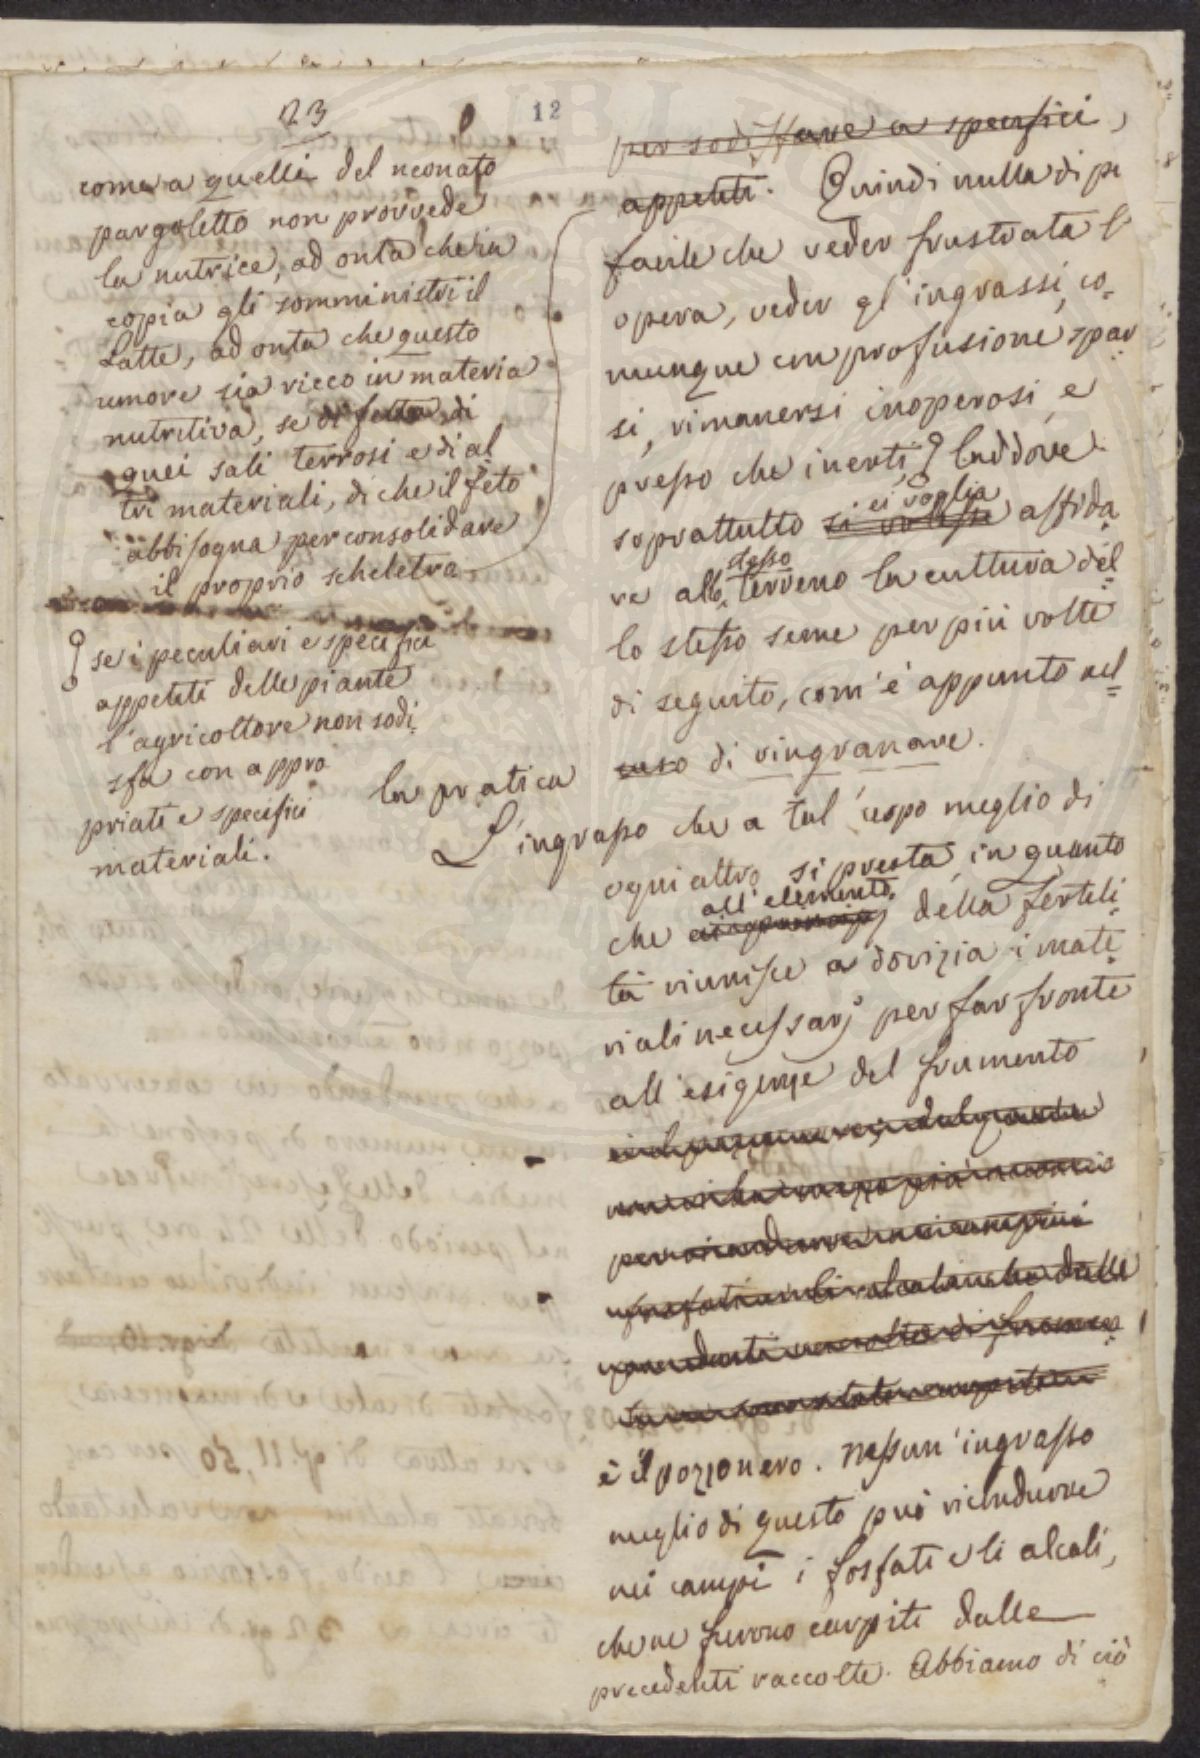 23
12
come a quelli del neonato
pargoletto non provvede
la nutrice, ad onta che in
copia gli somministri il
Latte, ad onta che questo
umore sia ricco in materia
nutritiva, se di
quei sali terrosi e di al
tri materiali, di che il feto
abbisogna per consolidare
il proprio scheletra
se i peculiari e specifici
appetiti delle piante
l'agricoltore non sodi
sfa con appro
priati e specifici
materiali.
per sodisfare a specifici
appetiti. Quindi nulla di pi
facile che veder frustrata l'
opera, veder gl'ingrassi, co=
munque con profusione spar
si, rimanersi inoperosi, e
presso che inerti, laddove
soprattutto si ci voglia affida
re allo stesso terreno la cultura del
lo stesso seme per più volte
di seguito, com'è appunto nel=
la pratica caso di ringranare.
L'ingrasso che a tal'uopo meglio di
ogni altro si presta, in quanto
che all'elemento della fertili
tà riunisce a dovizia i mate
riali necessarj per far fronte
all'esigenze del frumento
è il pozzo nero. Nessun'ingrasso
meglio di questo può ricondurre
nei campi i fosfati e li alcali,
che ne furono carpiti dalle
precedenti raccolte. Abbiamo di ciò